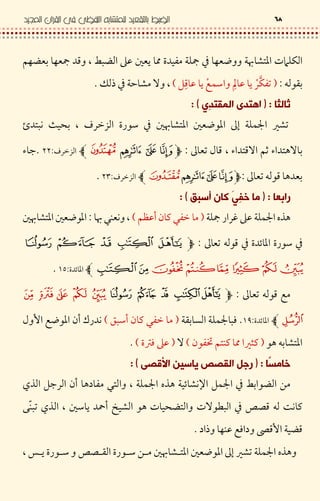 ٦٨
الضبط بالتقعيد للمتشابه اللفظي في القرآن المجيد
الكلمات المتشابهة ووضعها في جملة مفيدة مما يعين على الضبط ، وقد جمعها بعضهم
بقوله : ( تفكَّرْ يا عالِمِ واسمعْ يا عاقِل ) ، ولا مشاحة في ذلك .
ثالثا : ( اهتدى المقتدي ) :
تشير الجملة إلى الموضعين المتشابهين في سورة الزخرف ، بحيث نبتدئ
بالاهتداء ثم الاقتداء ، قال تعالى : ﴿ وَإِنَّا عَلَىٰ ءَاثَٰرِهِم مُّهْتَدُونَ ﴾ الزخرف: ٢٢ .جاء
بعدها قوله تعالى : ﴿ وَإِنَّا عَلَىٰ ءَاثَٰرِهِم مُّقْتَدُونَ ﴾ الزخرف: ٢٣ .
رابعا : ( ما خفِيَ كان أسبق ) :
هذه الجملة على غرار جملة ( ما خفي كان أعظم ) ، ونعني بها : الموضعين المتشابهين
في سورة المائدة في قوله تعالى : ﴿ يَٰٓأَهْلَ ٱلْكِتَٰبِ قَدْ جَآءَكُمْ رَسُولُنَا
يُبَيِّنُ لَكُمْ كَثِيرًا مِّمَّا كُنتُمْ تُخْفُونَ مِنَ ٱلْكِتَٰبِ ﴾ المائدة: ١٥ .
مع قوله تعالى : ﴿ يَٰٓأَهْلَ ٱلْكِتَٰبِ قَدْ جَآءَكُمْ رَسُولُنَا يُبَيِّنُ لَكُمْ عَلَىٰ فَتْرَةٍ مِّنَ
ٱلرُّسُلِ ﴾ المائدة: ١٩ . فبالجملة السابقة ( ما خفي كان أسبق ) ندرك أن الموضع الأول
المتشابه هو ( كثيرا مما كنتم تخفون ) لا ( على فترة ) .
خامسًا : ( رجل القصص ياسين الأقصى ) :
من الضوابط في الجمل الإنشائية هذه الجملة ، والتي مفادها أن الرجل الذي
كانت له قصص في البطولات والتضحيات هو الشيخ أحمد ياسين ، الذي تبنّى
قضية الأقصى ودافع عنها وذاد .
وهذه الجملة تشير إلى الموضعين المتشابهين من سورة القصص و سورة يس ،